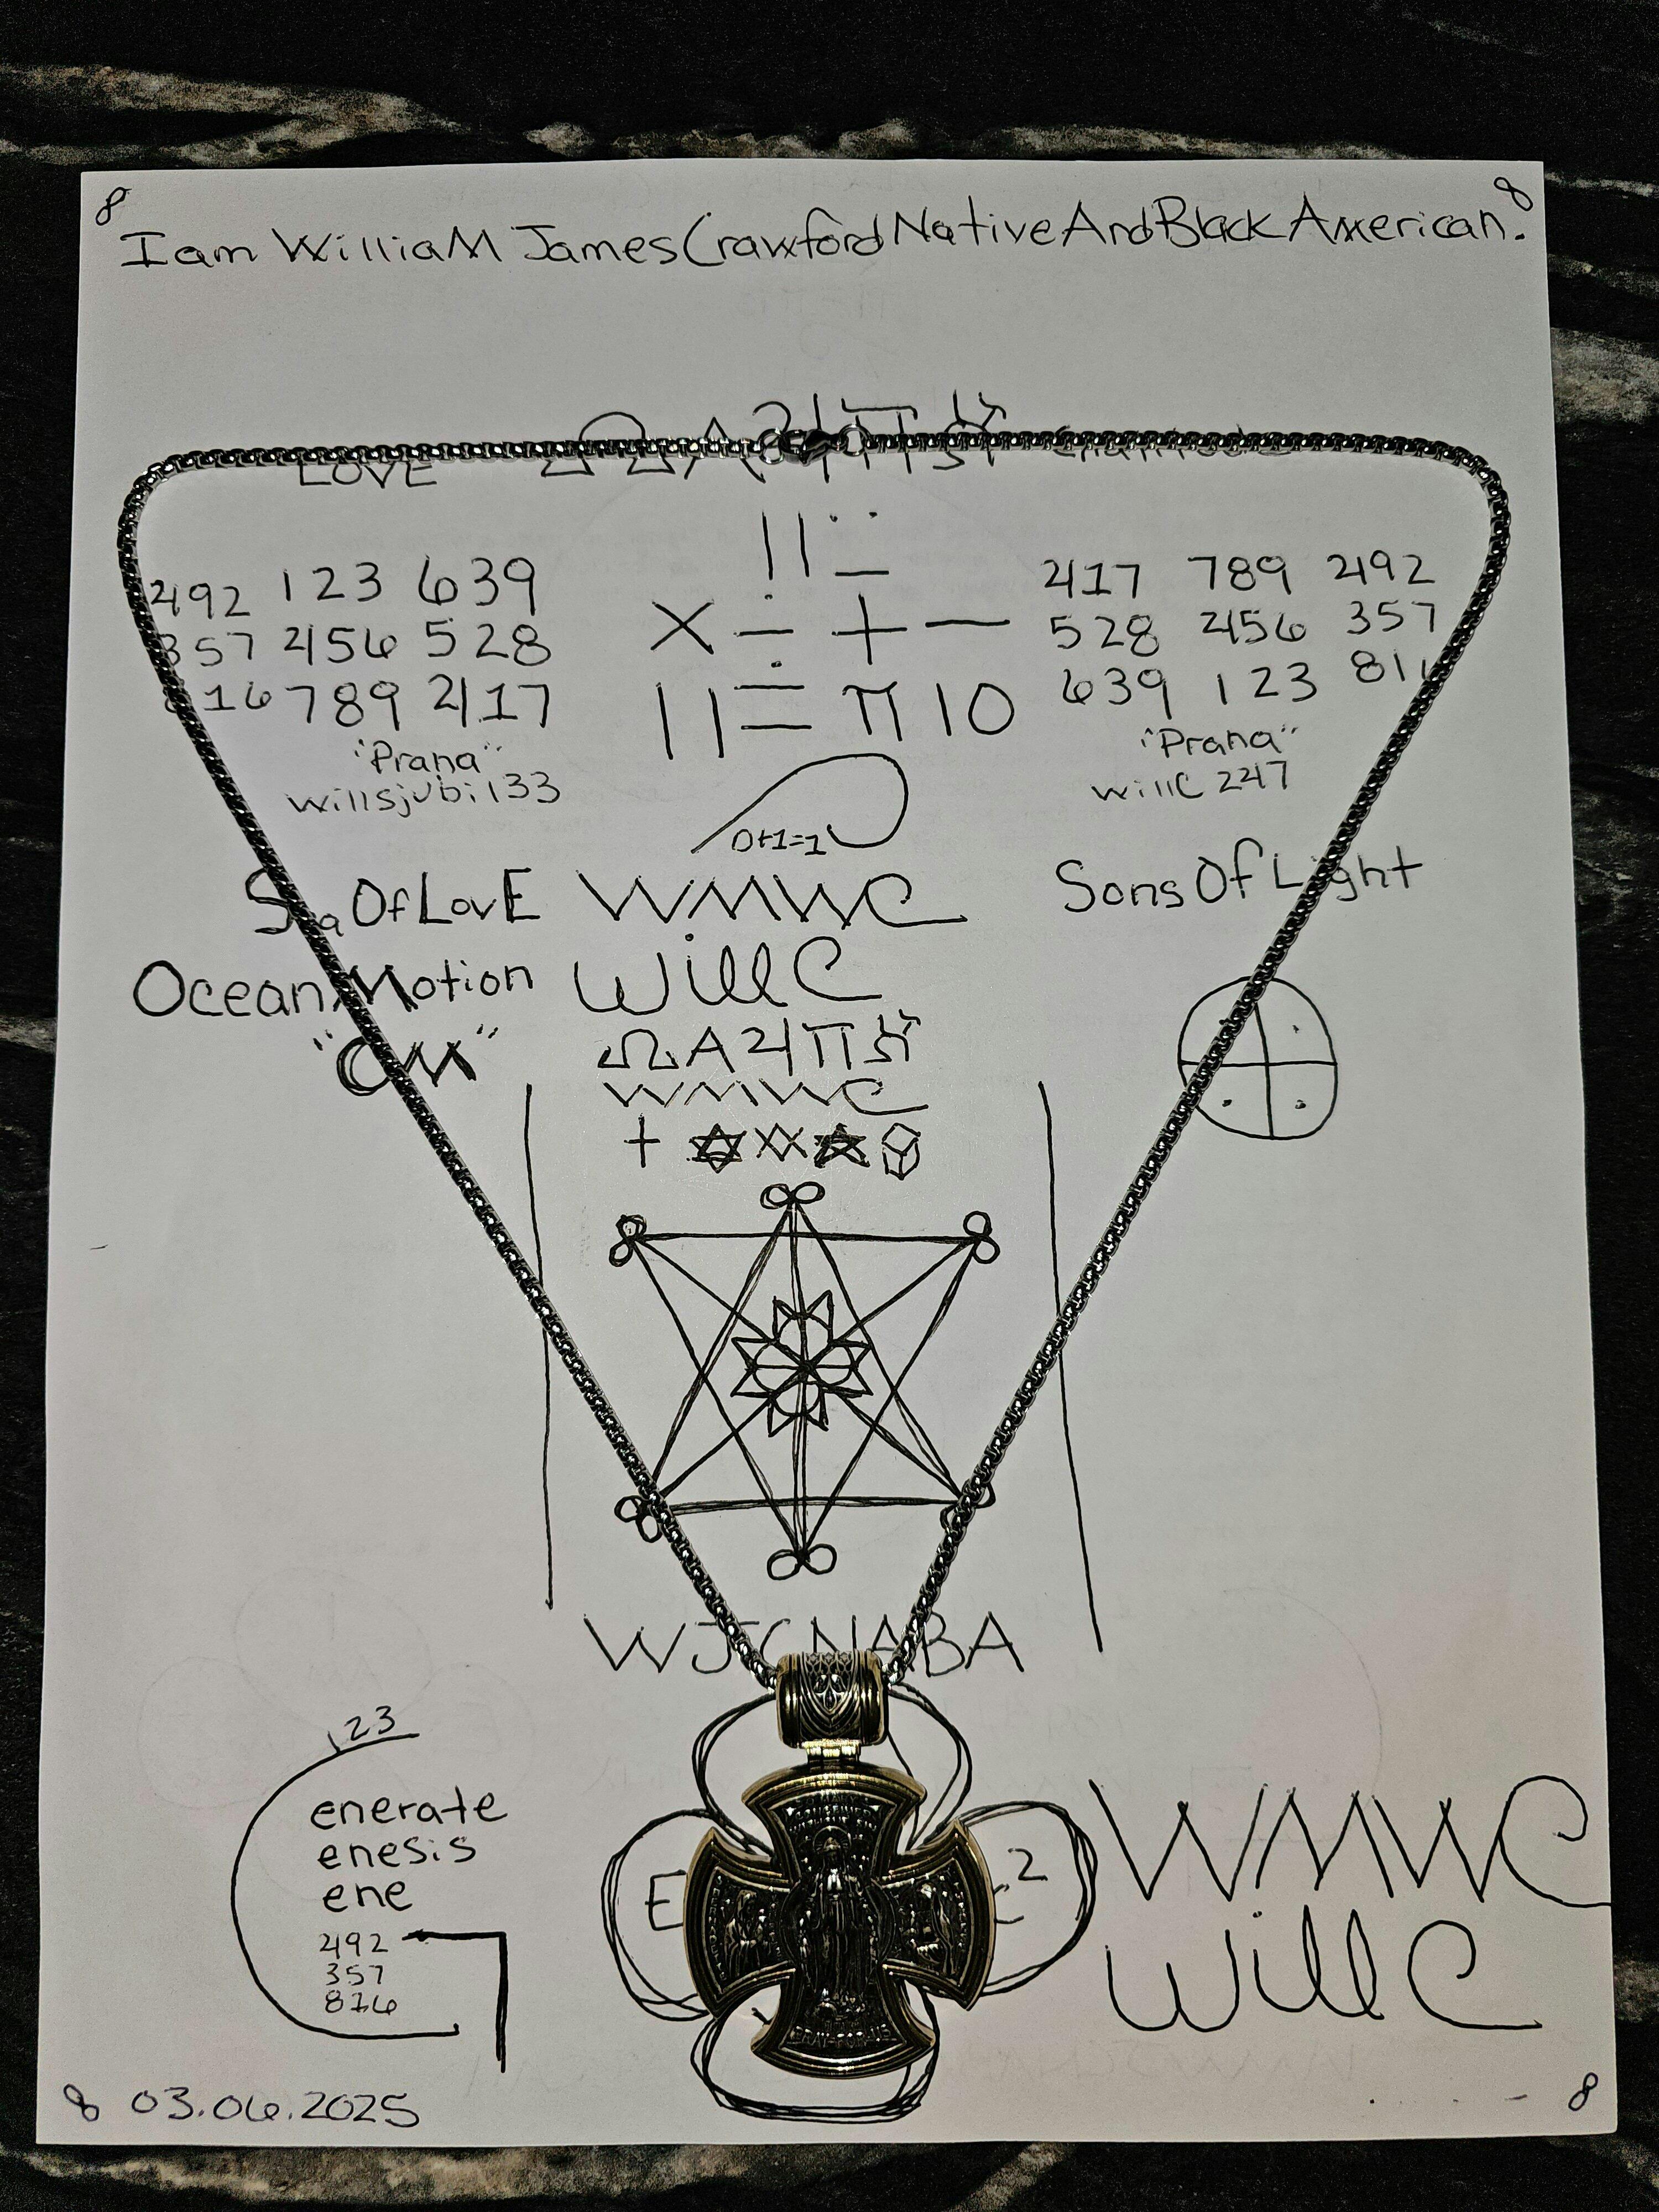 8 8
I am WilliaM James Crawford Native And Black American.
LOVE
492 123 639
357 456 528
816 789 417
"Prana"
willsjubi133
× ÷ + −
11 = π 10
417 789 492
528 456 357
639 123 816
"Prana"
willC 247
0+1=1
SeaOfLovE WMWC SonsOfLight
Ocean Motion WillC
"OM" Ω A 4 π
WMWC
WJCNABA
123
enerate
enesis
ene
492
357
816
E 2
WMWC
WillC
PRAY FOR US
8 03.06.2025 8